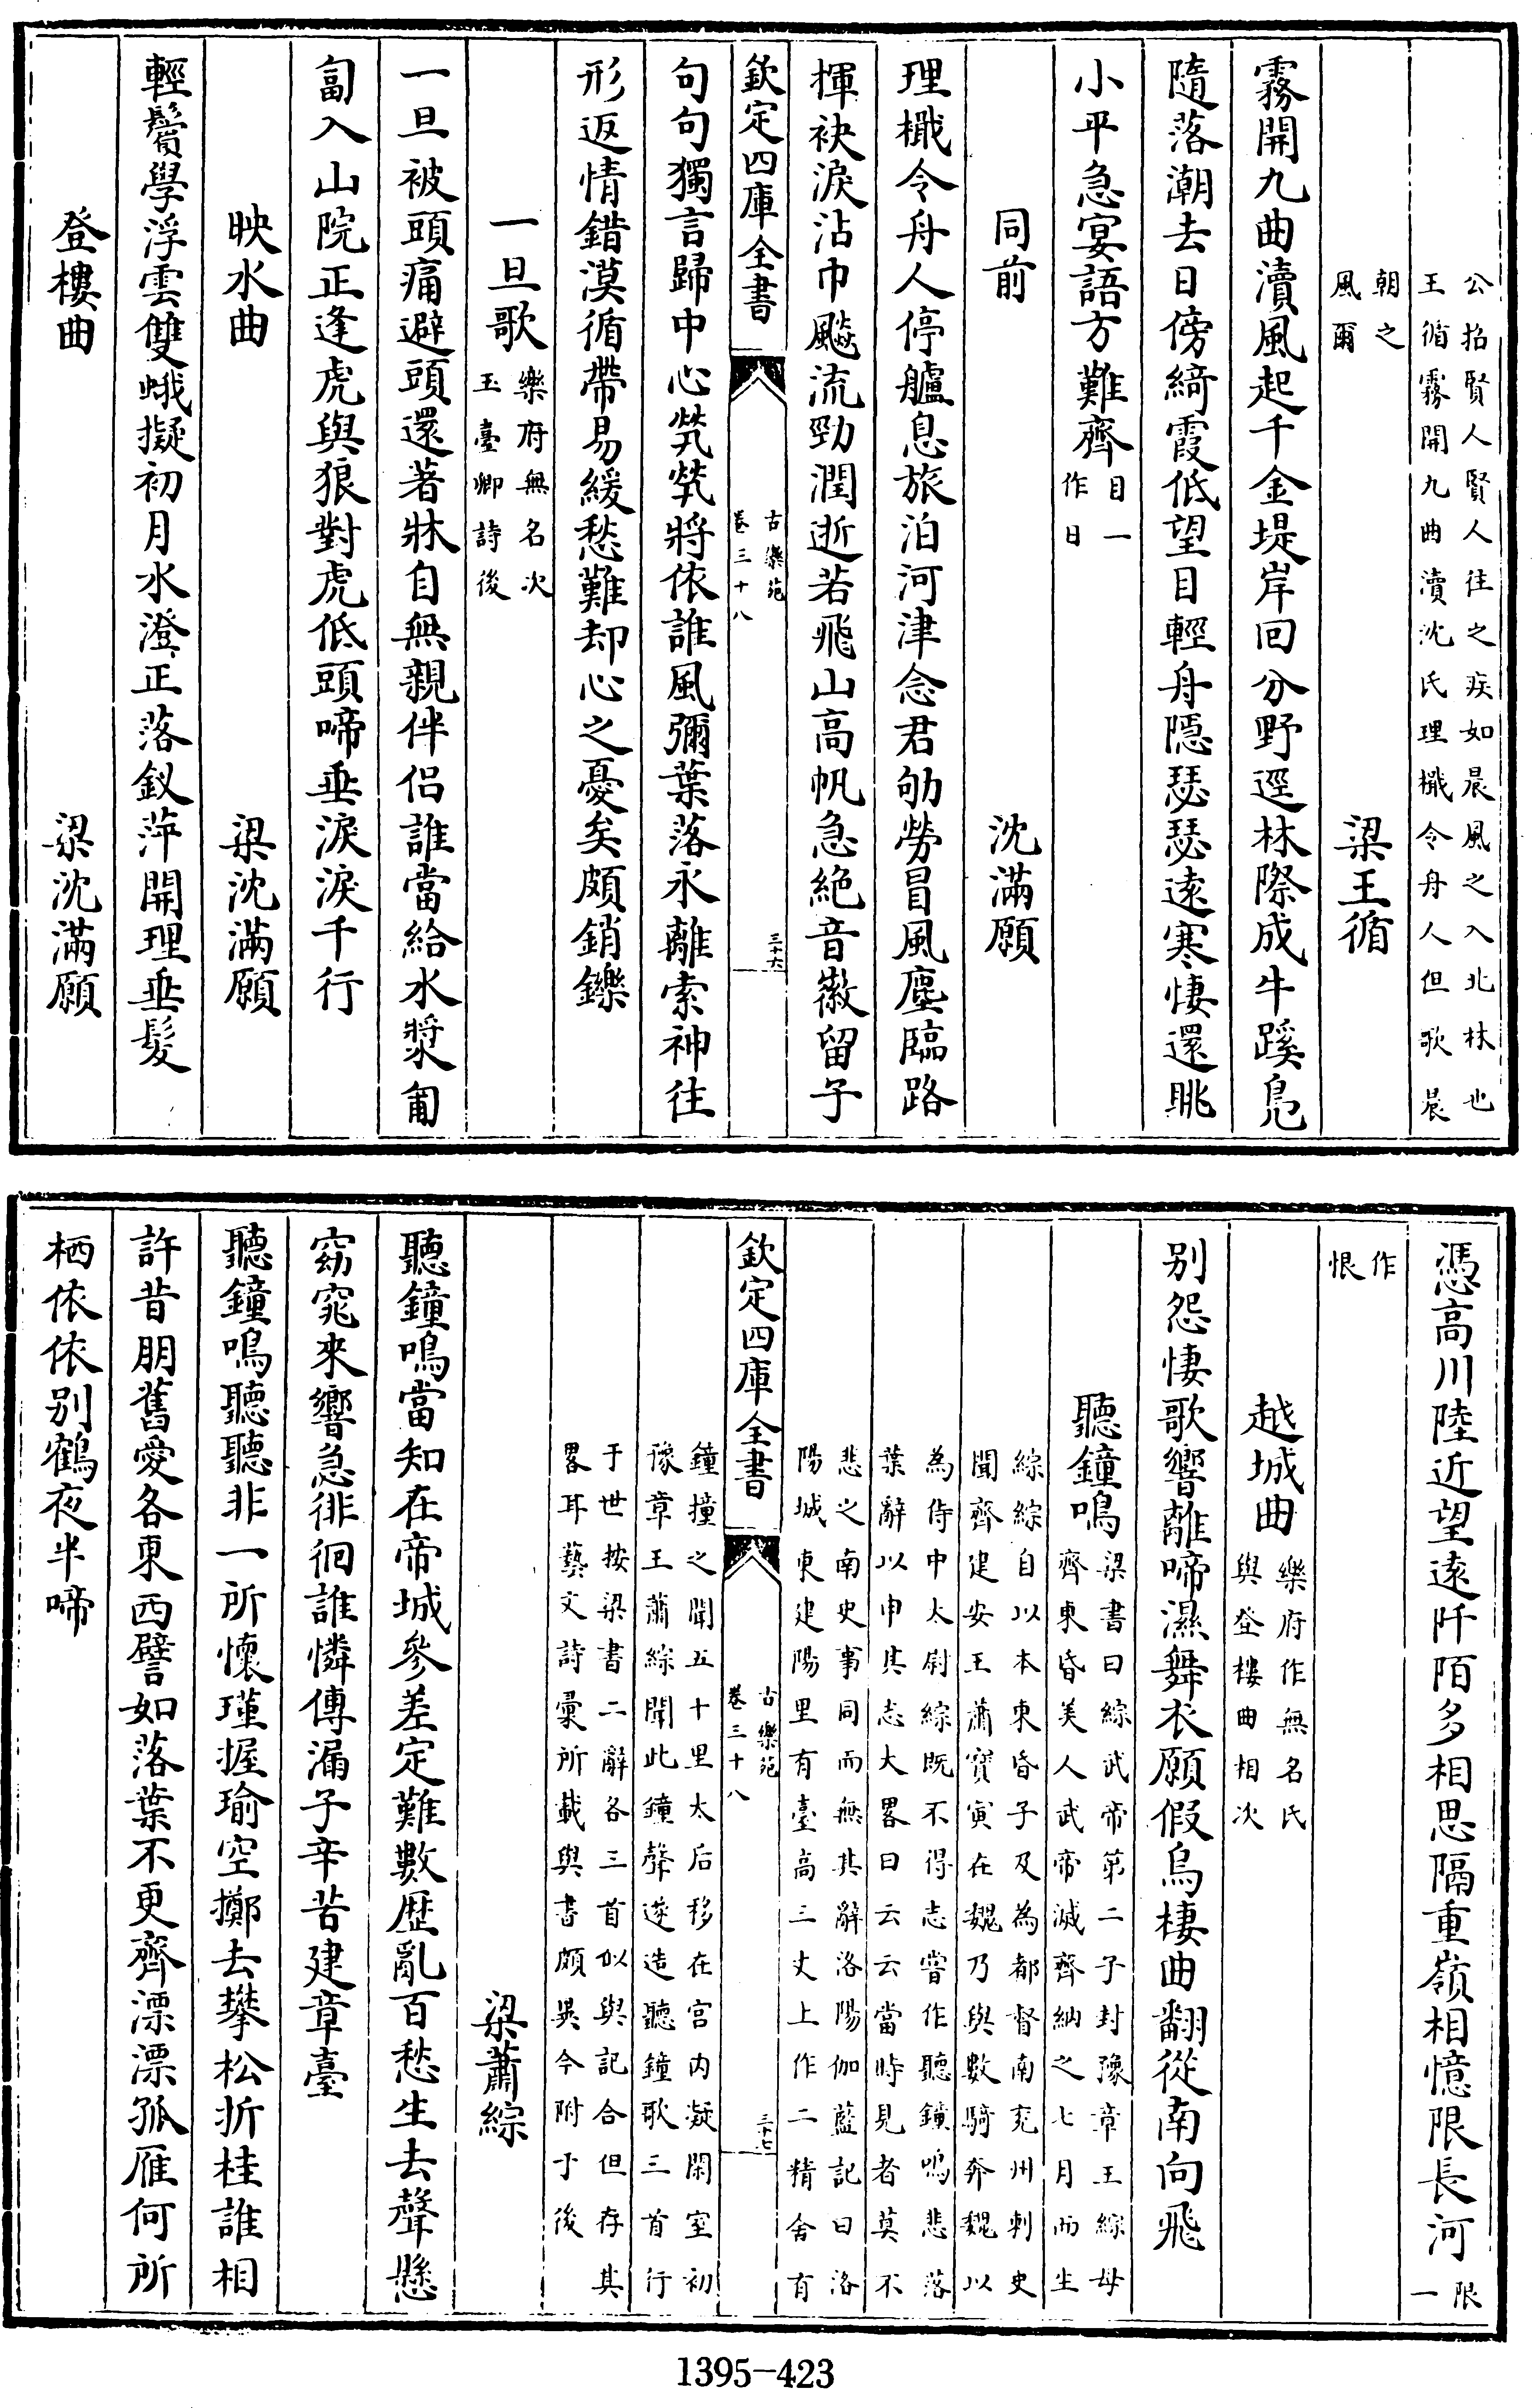 公招賢人賢人往之疾如晨風之入北林也
王循霧開九曲瀆沈氏理檝令舟人但歌晨
朝之
風爾
梁王循
霧開九曲瀆風起千金堤岸回分野逕林際成牛蹊鳧
隨落潮去日傍綺霞低望目輕舟隱瑟瑟遠寒悽還眺
小平急宴語方難齊
目一
作日
同前 沈滿願
理檝令舟人停艫息旅泊河津念君劬勞冒風塵臨路
揮袂淚沾巾飈流勁潤逝若飛山高帆急絶音徽留子
欽定四庫全書
古樂苑
卷三十八
三十六
句句獨言歸中心煢煢將依誰風彌葉落永離索神往
形返情錯漠循帶易緩愁難却心之憂矣頗銷鑠
一旦歌
樂府無名次
玉臺卿詩後
一旦被頭痛避頭還著牀自無親伴侣誰當給水漿匍
匐入山院正逢虎與狼對虎低頭啼垂淚淚千行
映水曲 梁沈滿願
輕鬢學浮雲雙蛾擬初月水澄正落釵萍開理垂髮
登樓曲 梁沈滿願
憑高川陸近望遠阡陌多相思隔重嶺相憶限長河
限一
作
恨
越城曲
樂府作無名氏
與登樓曲相次
别怨悽歌響離啼濕舞衣願假烏棲曲翻從南向飛
聽鐘鳴
梁書曰綜武帝第二子封豫章王綜母
齊東昏美人武帝滅齊納之七月而生
綜綜自以本東昏子及為都督南兖州刺史
聞齊建安王蕭寶寅在魏乃與數騎奔魏以
為侍中太尉綜既不得志嘗作聽鐘鳴悲落
葉辭以申其志大畧曰云云當時見者莫不
悲之南史事同而無其辭洛陽伽藍記曰洛
陽城東建陽里有臺高三丈上作二精舍有
欽定四庫全書
古樂苑
卷三十八
三十七
鐘撞之聞五十里太后移在宫内凝閑室初
豫章王蕭綜聞此鐘聲遂造聽鐘歌三首行
于世按梁書二辭各三首似與記合但存其
畧耳藝文詩彙所載與書頗異今附于後
梁蕭綜
聽鐘鳴當知在帝城參差定難數歷亂百愁生去聲懸
窈窕來響急徘徊誰憐傳漏子辛苦建章臺
聽鐘鳴聽聽非一所懷瑾握瑜空擲去攀松折桂誰相
許昔朋舊愛各東西譬如落葉不更齊漂漂孤雁何所
栖依依别鶴夜半啼
1395-423